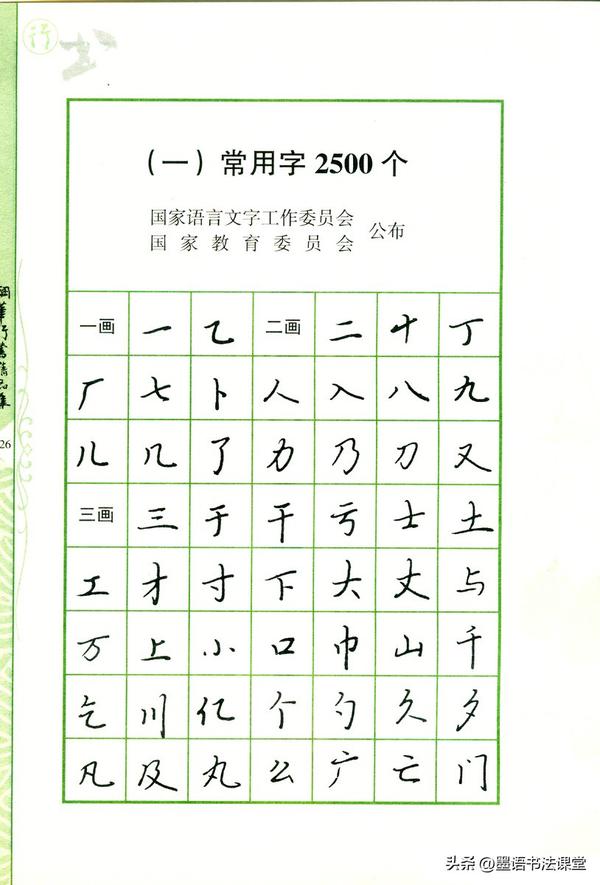 行书
（一）常用字2500个
国家语言文字工作委员会
国家教育委员会
公布
一画 一 乙 二画 二 十 丁
厂 七 卜 人 入 八 九
儿 几 了 力 乃 刀 又
三画 三 于 干 亏 士 土
工 才 寸 下 大 丈 与
万 上 小 口 巾 山 千
乞 川 亿 个 勺 久 夕
凡 及 丸 么 广 亡 门
26
头条@墨语书法课堂